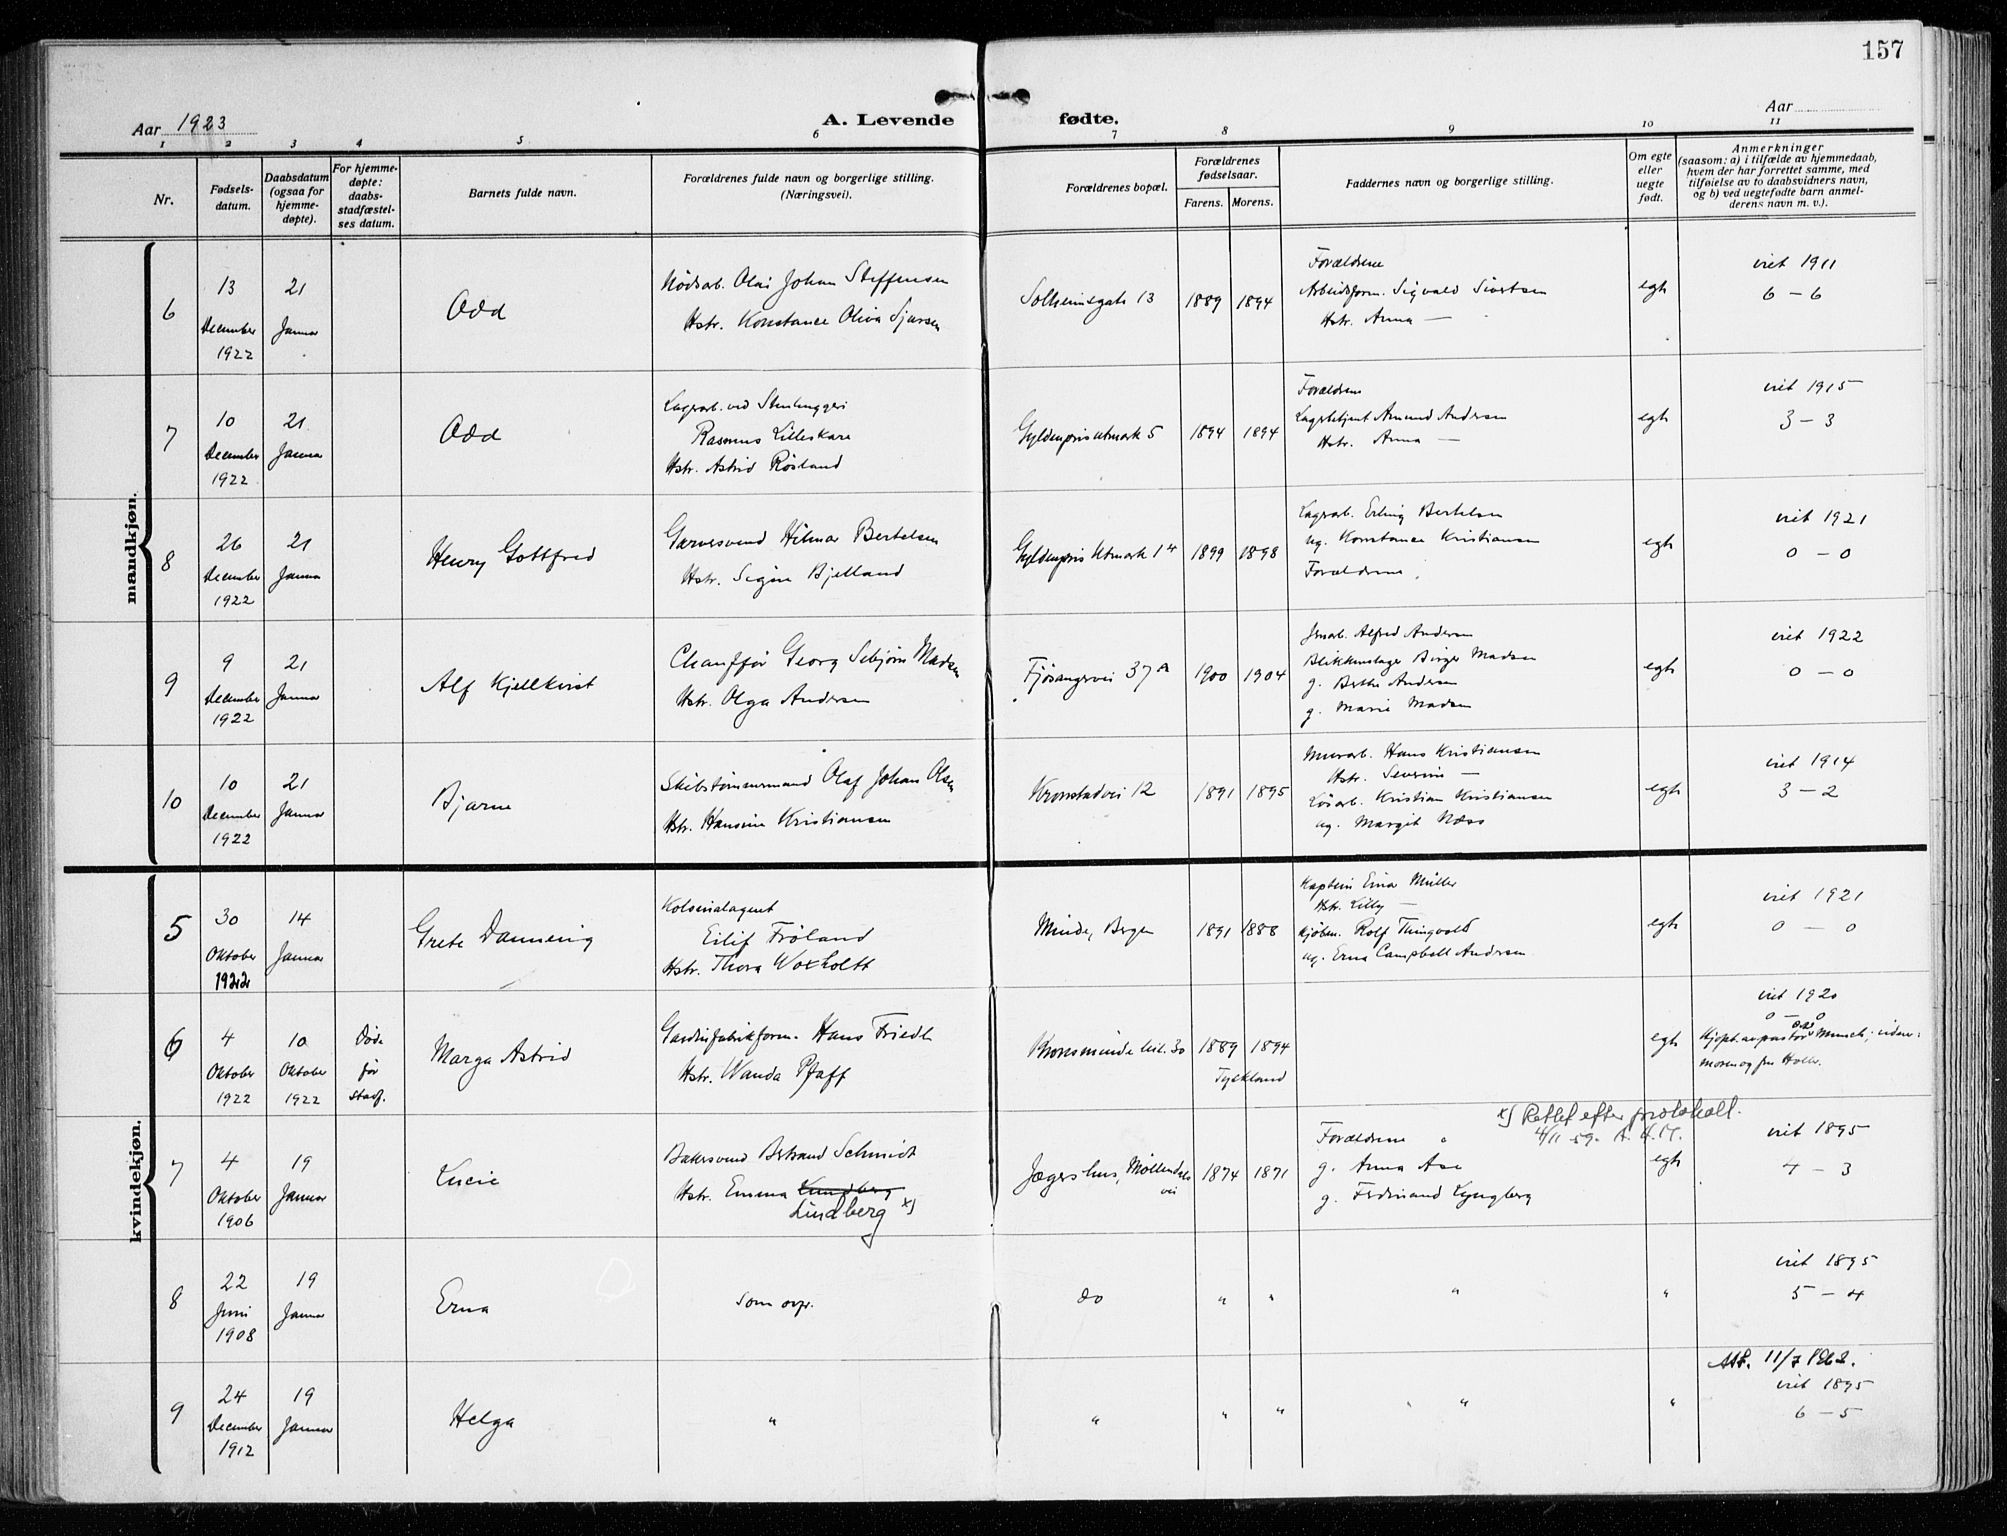 157
Aar 1923
A. Levende fødte.
Aar
1 2 3 4 5 6 7 8 9 10 11
Nr.
Fødsels-
datum.
Daabsdatum
(ogsaa for
hjemme-
døpte).
For hjemme-
døpte:
daabs-
stadfæstel-
ses datum.
Barnets fulde navn.
Forældrenes fulde navn og borgerlige stilling.
(Næringsvei).
Forældrenes bopæl.
Forældrenes
fødselsaar.
Farens. Morens.
Faddernes navn og borgerlige stilling.
Om egte
eller
uegte
født.
Anmerkninger
(saasom: a) i tilfælde av hjemmedaab,
hvem der har forrettet samme, med
tilføielse av to daabsvidners navn,
og b) ved uegtefødte barn anmel-
derens navn m. v.).
mandkjøn.
6
13
December
1922
21
Januar
Odd
Olai Johan Steffensen
Hstr. Konstance Oliva Sjursen
Solheimsgate 13
1889 1894
Forældrene
Arbeidsform. Sigvald Sivertsen
Hstr. Anna —
egte
viet 1911
6 – 6
7
10
December
1922
21
Januar
Odd
Lagerarb. ved Stenhuggeri
Rasmus Lilleskare
Hstr. Astrid Røsland
Gyldenpris Utmark 5
1894 1894
Forældrene
Amund Andersen
Hstr. Anna —
egte
viet 1915
3 – 3
8
26
December
1922
21
Januar
Henry Gottfred
Garversvend Hilmar Bertelsen
Hstr. Signe Bjelland
Gyldenpris Utmark 14
1899 1898
Lagerarb. Erling Bertelsen
ug. Konstance Kristiansen
Forældrene
egte
viet 1921
0 – 0
9
9
December
1922
21
Januar
Alf Kjellkvist
Chauffør Georg Sebjørn Madsen
Hstr. Olga Andersen
Fjøsangervei 37A
1900 1904
Jernarb. Alfred Andersen
Blikkenslager Birger Madsen
g. Berthe Andersen
g. Marie Madsen
egte
viet 1922
0 – 0
10
10
December
1922
21
Januar
Bjarne
Skibstømmermand Olaf Johan Olsen
Hstr. Hansine Kristiansen
Kronstadvei 12
1891 1895
Murarb. Hans Kristiansen
Hstr. Severine —
Løsarb. Kristian Kristiansen
ug. Margit Næss
egte
viet 1914
3 – 2
kvindekjøn.
5
30
Oktober
1922
14
Januar
Grete Dannevig
Kolonialagent
Eilif Frøland
Hstr. Thora Woxholtt
Minde, Bergen
1891 1888
Kaptein Einar Müller
Hstr. Lilly —
Kjøbm. Rolf Thingvold
ug. Erna Campbell Andersen
egte
viet 1921
0 – 0
6
4
Oktober
1922
10
Oktober
1922
Døde
før
stadf.
Marga Astrid
Gardinfabrikform. Hans Friedl
Hstr. Wanda Pfaff
Kronsminde leil. 30
1889 1894
Tyskland
egte
viet 1920
0 – 0
Hjdpt. av pastor Munch; vidner:
moren og frk Holbr.
7
4
Oktober
1906
19
Januar
Lucie
Bakersvend Bertrand Schmidt
Hstr. Emma Lundberg
Lindberg x)
Jægershus, Møllendals
vei
1874 1871
x) Rettet efter protokoll.
4/11 59.
Forældrene
g. Anna Ase
g. Ferdinand Lyngberg
egte
viet 1895
4 – 3
8
22
Juni
1908
19
Januar
Erna
som ovf.
do
" " " "
viet 1895
5 – 4
9
24
December
1912
19
Januar
Helga
" " " " " "
Att. 11/7 1962.
viet 1895
6 – 5